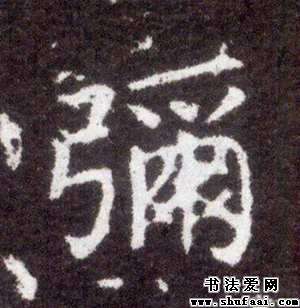 彌
书法爱网
www.shufaai.com